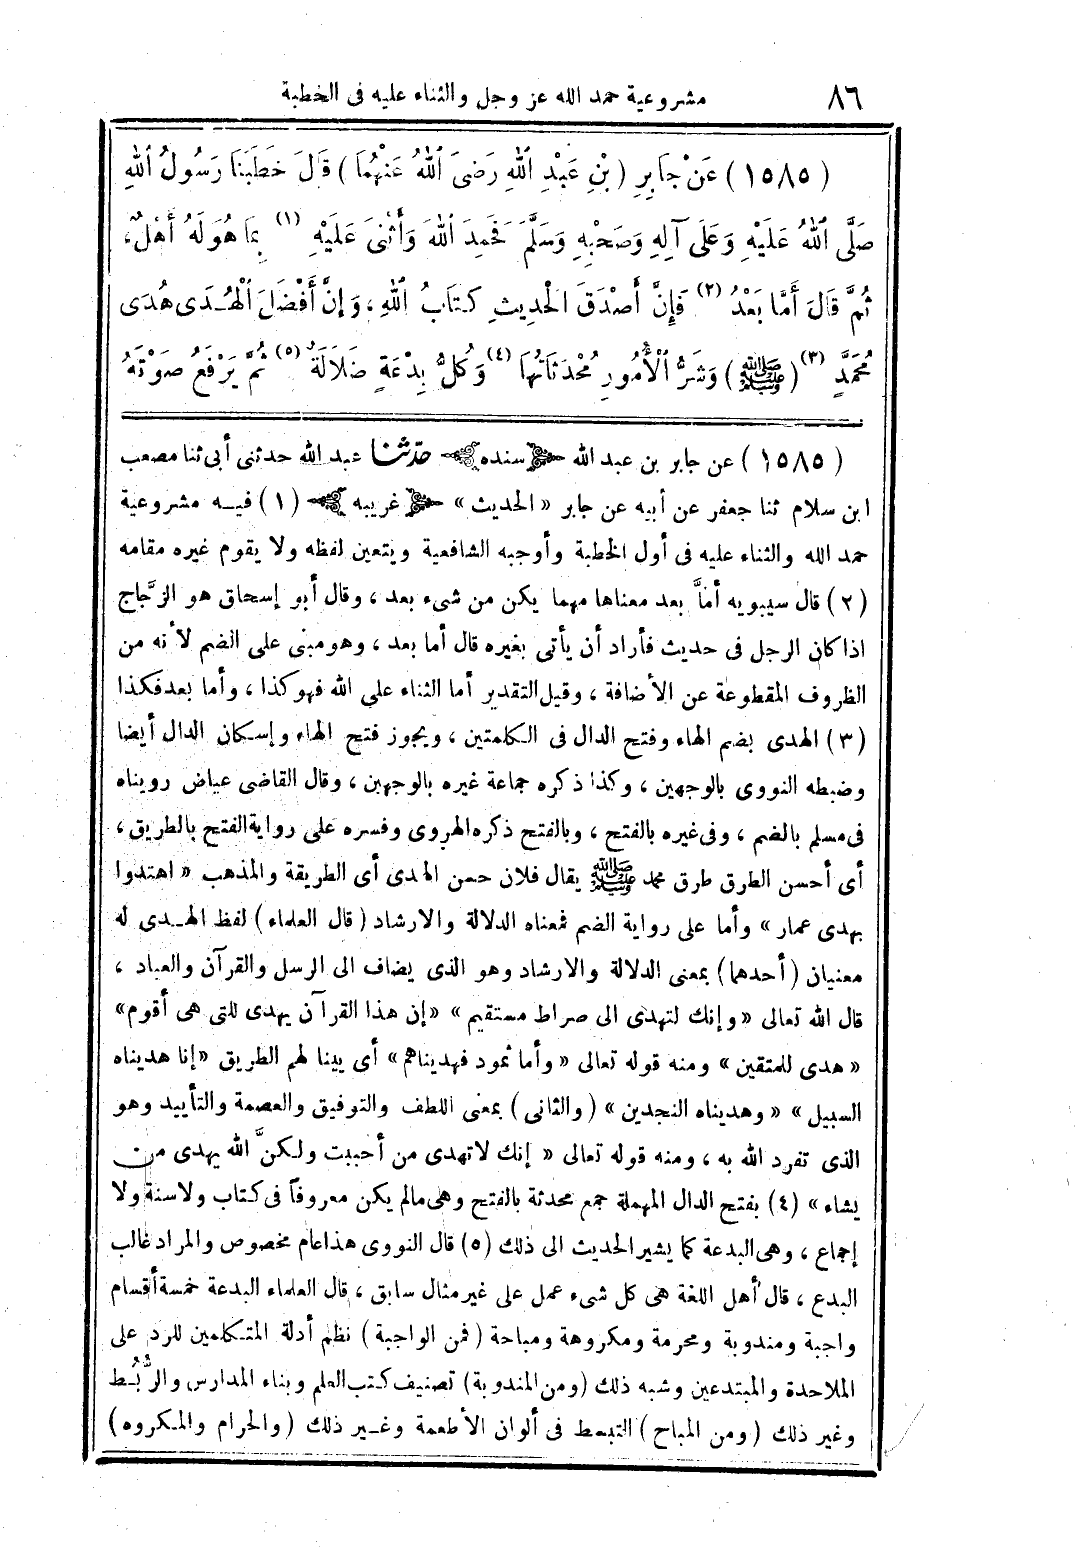 ٨٦ مشروعية حمد الله عز وجل والثناء عليه فى الخطبة
(١٥٨٥) عَنْ جَابِرِ (بْنِ عَبْدِ اللهِ رَضِىَ اللهُ عَنْهُمَا) قَالَ خَطَبَنَا رَسُولُ اللهِ
صَلَّى اللهُ عَلَيْهِ وَعَلَى آلِهِ وَصَحْبِهِ وَسَلَّمَ فَحَمِدَ اللهَ وَأَثْنَى عَلَيْهِ (١) بِمَا هُوَ لَهُ أَهْلٌ،
ثُمَّ قَالَ أَمَّا بَعْدُ (٢) فَإِنَّ أَصْدَقَ الْحَدِيثِ كِتَابُ اللهِ، وَإِنَّ أَفْضَلَ الْهُدَى هُدَى
مُحَمَّدٍ (٣) (ﷺ) وَشَرُّ الْأُمُورِ مُحْدَثَاتُهَا (٤) وَكُلُّ بِدْعَةٍ ضَلَالَةٌ (٥) ثُمَّ يَرْفَعُ صَوْتَهُ
(١٥٨٥) عن جابر بن عبد الله ﴿سنده﴾ حدّثنا عبد الله حدثنى أبى ثنا مصعب
ابن سلام ثنا جعفر عن أبيه عن جابر «الحديث» ﴿غريبه﴾ (١) فيه مشروعية
حمد الله والثناء عليه فى أول الخطبة وأوجبه الشافعية ويتعين لفظه ولا يقوم غيره مقامه
(٢) قال سيبويه أمَّا بعد معناها مهما يكن من شىء بعد، وقال أبو إسحاق هو الزَّجاج
اذا كان الرجل فى حديث فأراد أن يأتى بغيره قال أما بعد، وهو مبنى على الضم لأنه من
الظروف المقطوعة عن الأضافة، وقيل التقدير أما الثناء على الله فهو كذا، وأما بعد فكذا
(٣) الهدى بضم الهاء وفتح الدال فى الكلمتين، ويجوز فتح الهاء وإسكان الدال أيضا
وضبطه النووى بالوجهين، وكذا ذكره جماعة غيره بالوجهين، وقال القاضى عياض رويناه
فى مسلم بالضم، وفى غيره بالفتح، وبالفتح ذكره الهروى وفسره على رواية الفتح بالطريق،
أى أحسن الطرق طرق محمد ﷺ يقال فلان حسن الهدى أى الطريقة والمذهب «اهتدوا
بهدى عمار» وأما على رواية الضم فمعناه الدلالة والارشاد (قال العلماء) لفظ الهدى له
معنيان (أحدهما) بمعنى الدلالة والارشاد وهو الذى يضاف الى الرسل والقرآن والعباد،
قال الله تعالى «وإنك لتهدى الى صراط مستقيم» «إن هذا القرآن يهدى للتى هى أقوم»
«هدى للمتقين» ومنه قوله تعالى «وأما ثمود فهديناهم» أى بينا لهم الطريق «إنا هديناه
السبيل» «وهديناه النجدين» (والثانى) بمعنى اللطف والتوفيق والعصمة والتأييد وهو
الذى تفرد الله به، ومنه قوله تعالى «إنك لا تهدى من أحببت ولكنَّ الله يهدى من
يشاء» (٤) بفتح الدال المهملة جمع محدثة بالفتح وهى مالم يكن معروفاً فى كتاب ولا سنة ولا
إجماع، وهى البدعة كما يشير الحديث الى ذلك (٥) قال النووى هذا عام مخصوص والمراد غالب
البدع، قال أهل اللغة هى كل شىء عمل على غير مثال سابق، قال العلماء البدعة خمسة أقسام
واجبة ومندوبة ومحرمة ومكروهة ومباحة (فمن الواجبة) نظم أدلة المتكلمين للرد على
الملاحدة والمبتدعين وشبه ذلك (ومن المندوبة) تصنيف كتب العلم وبناء المدارس والرُّبُط
وغير ذلك (ومن المباح) التبسط فى ألوان الأطعمة وغير ذلك (والحرام والمكروه)